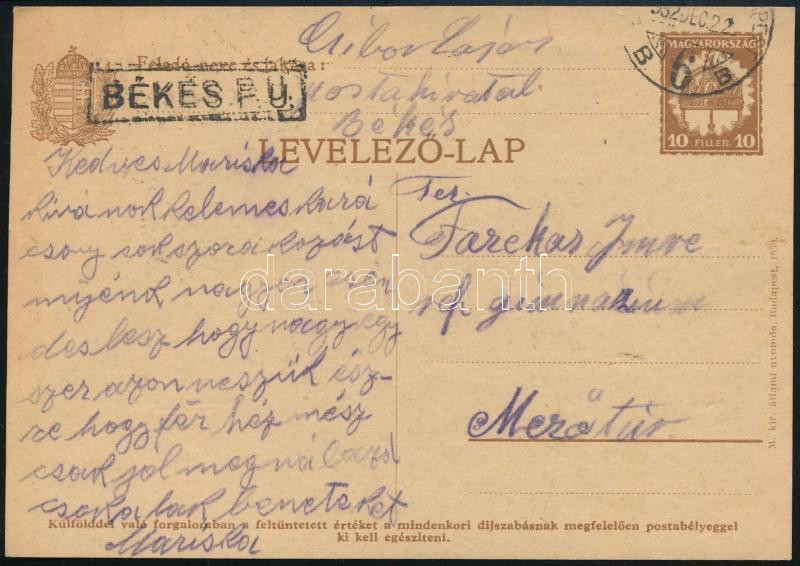 Feladó neve és lakása:
Czibor Lajos
BÉKÉS P.U.
postahivatal
Békés
LEVELEZŐ-LAP
932 DEC. 22
MAGYARORSZÁG
6
10 FILLÉR 10
Kedves Mariska
kívánok kelemes kará
csony sok szóra kozást
mijénk nagyon
des lesz hogy nagy egy
szer azon veszük ész-
re hogy fér héz mész
csak jol meg ná lazd
csokolak beneteket
Mariska
Ter.
Farekas Imre
ref. gimnazium
Mezőtúr
darabanth
M. kir. állami nyomda. Budapest,
Külfölddel való forgalomban a feltüntetett értéket a mindenkori díjszabásnak megfelelően postabélyeggel
ki kell egészíteni.